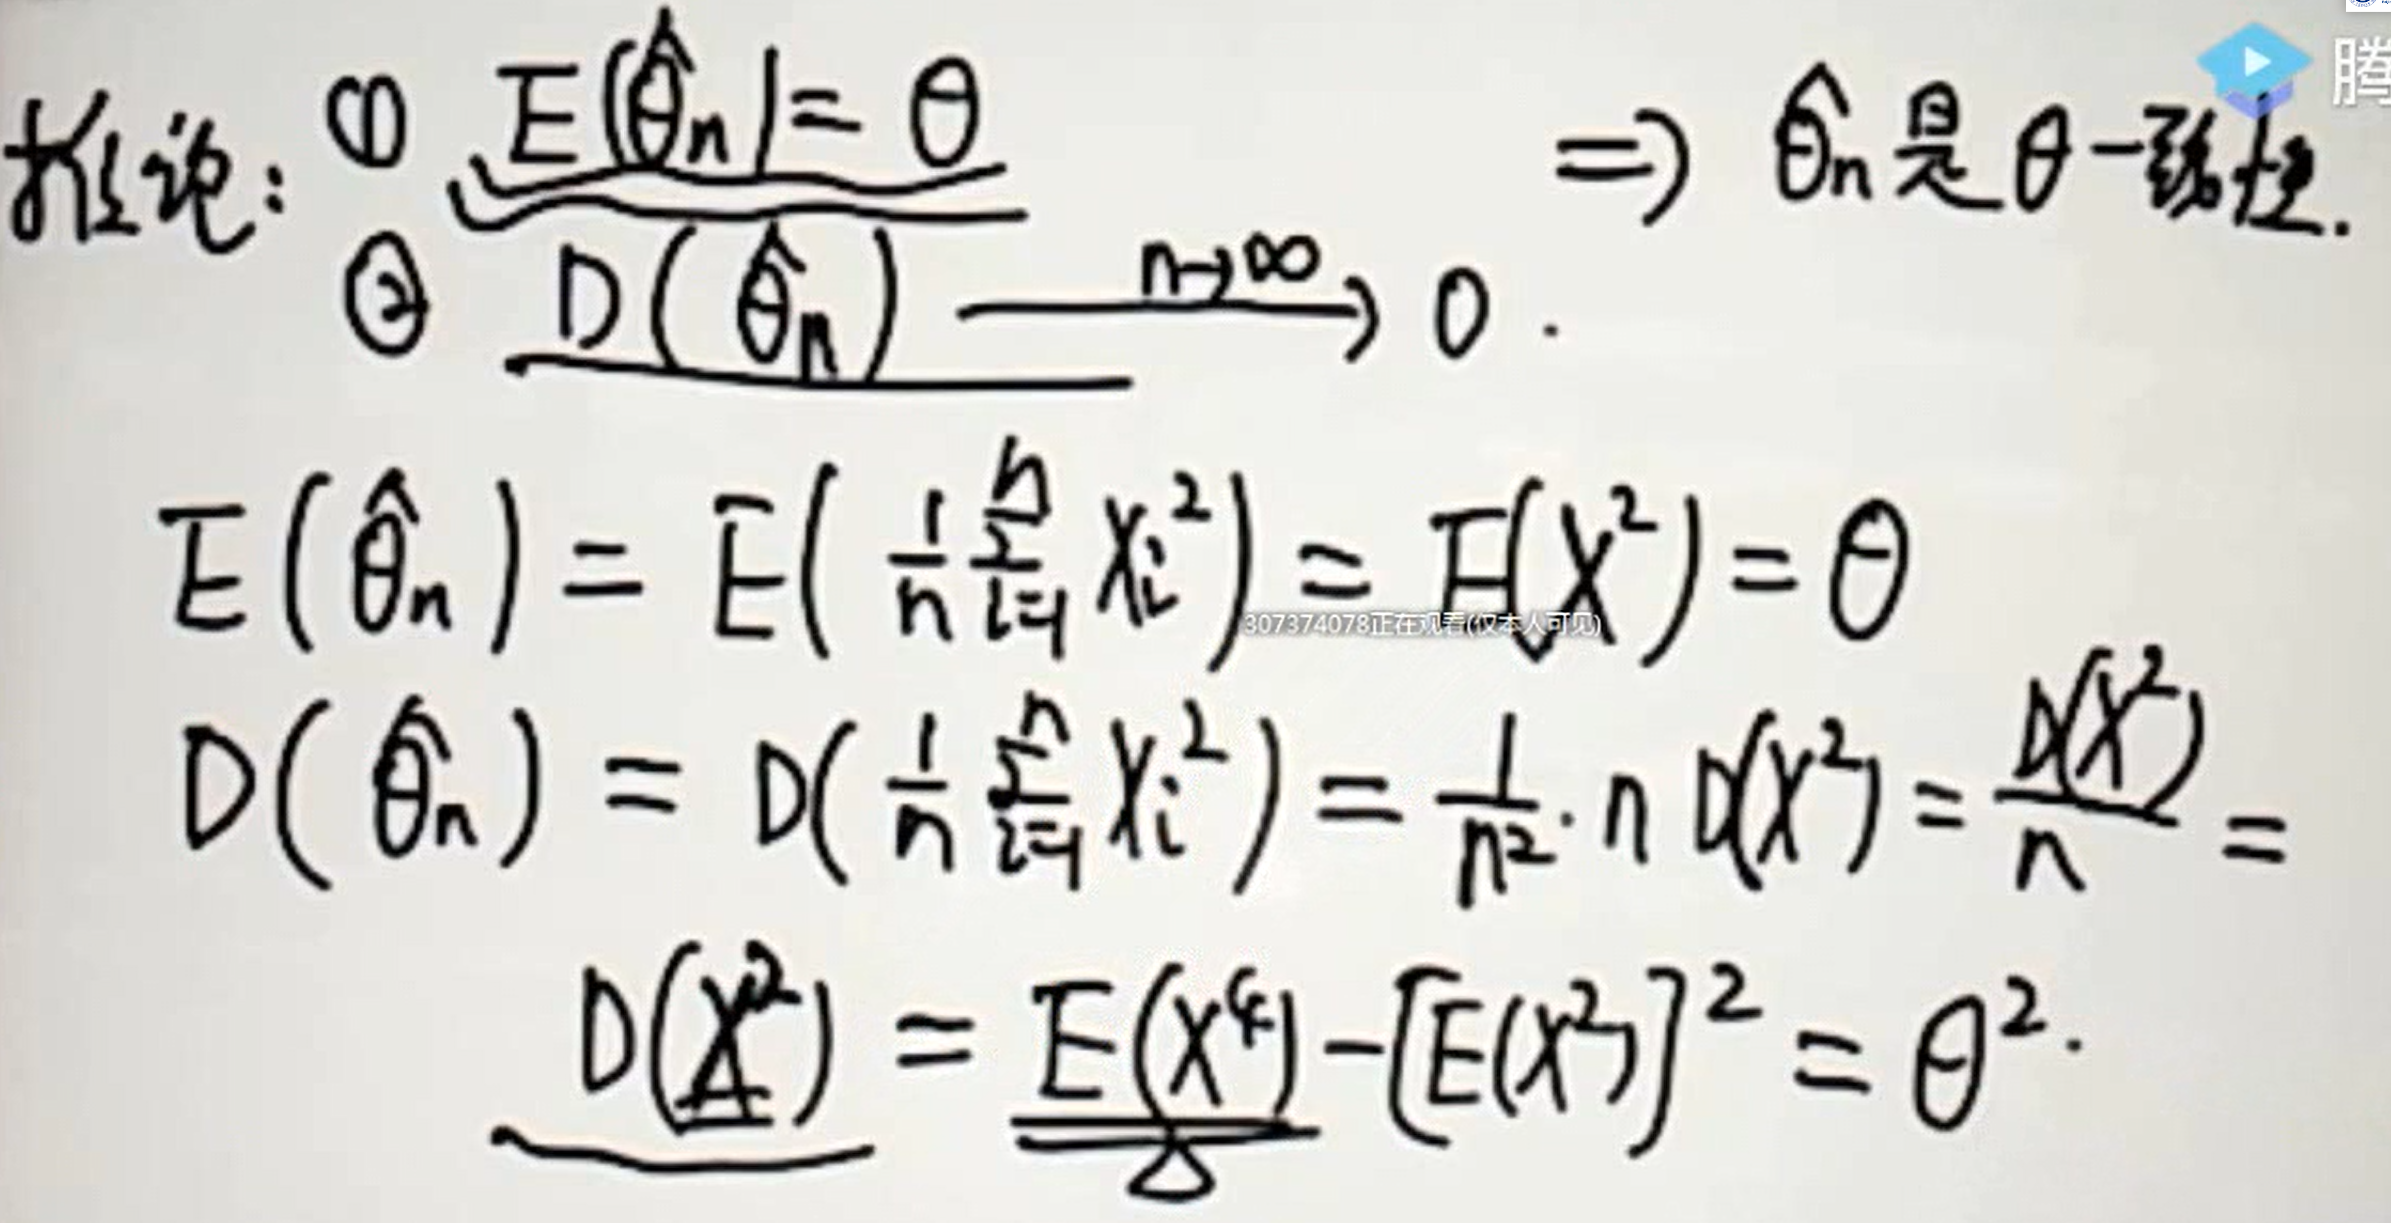 腾
推论: ① E(θ̂n)= θ ⇒ θ̂n是θ一致性.
② D(θ̂n) n→∞ → 0.
E(θ̂n) = E( 1/n Σ_{i=1}^{n} Xi²) = E(X²) = θ
307374078正在观看(仅本人可见)
D(θ̂n) = D( 1/n Σ_{i=1}^{n} Xi²) = 1/n² · n D(X²) = D(X²)/n =
D(X²) = E(X⁴) - [E(X²)]² = θ².